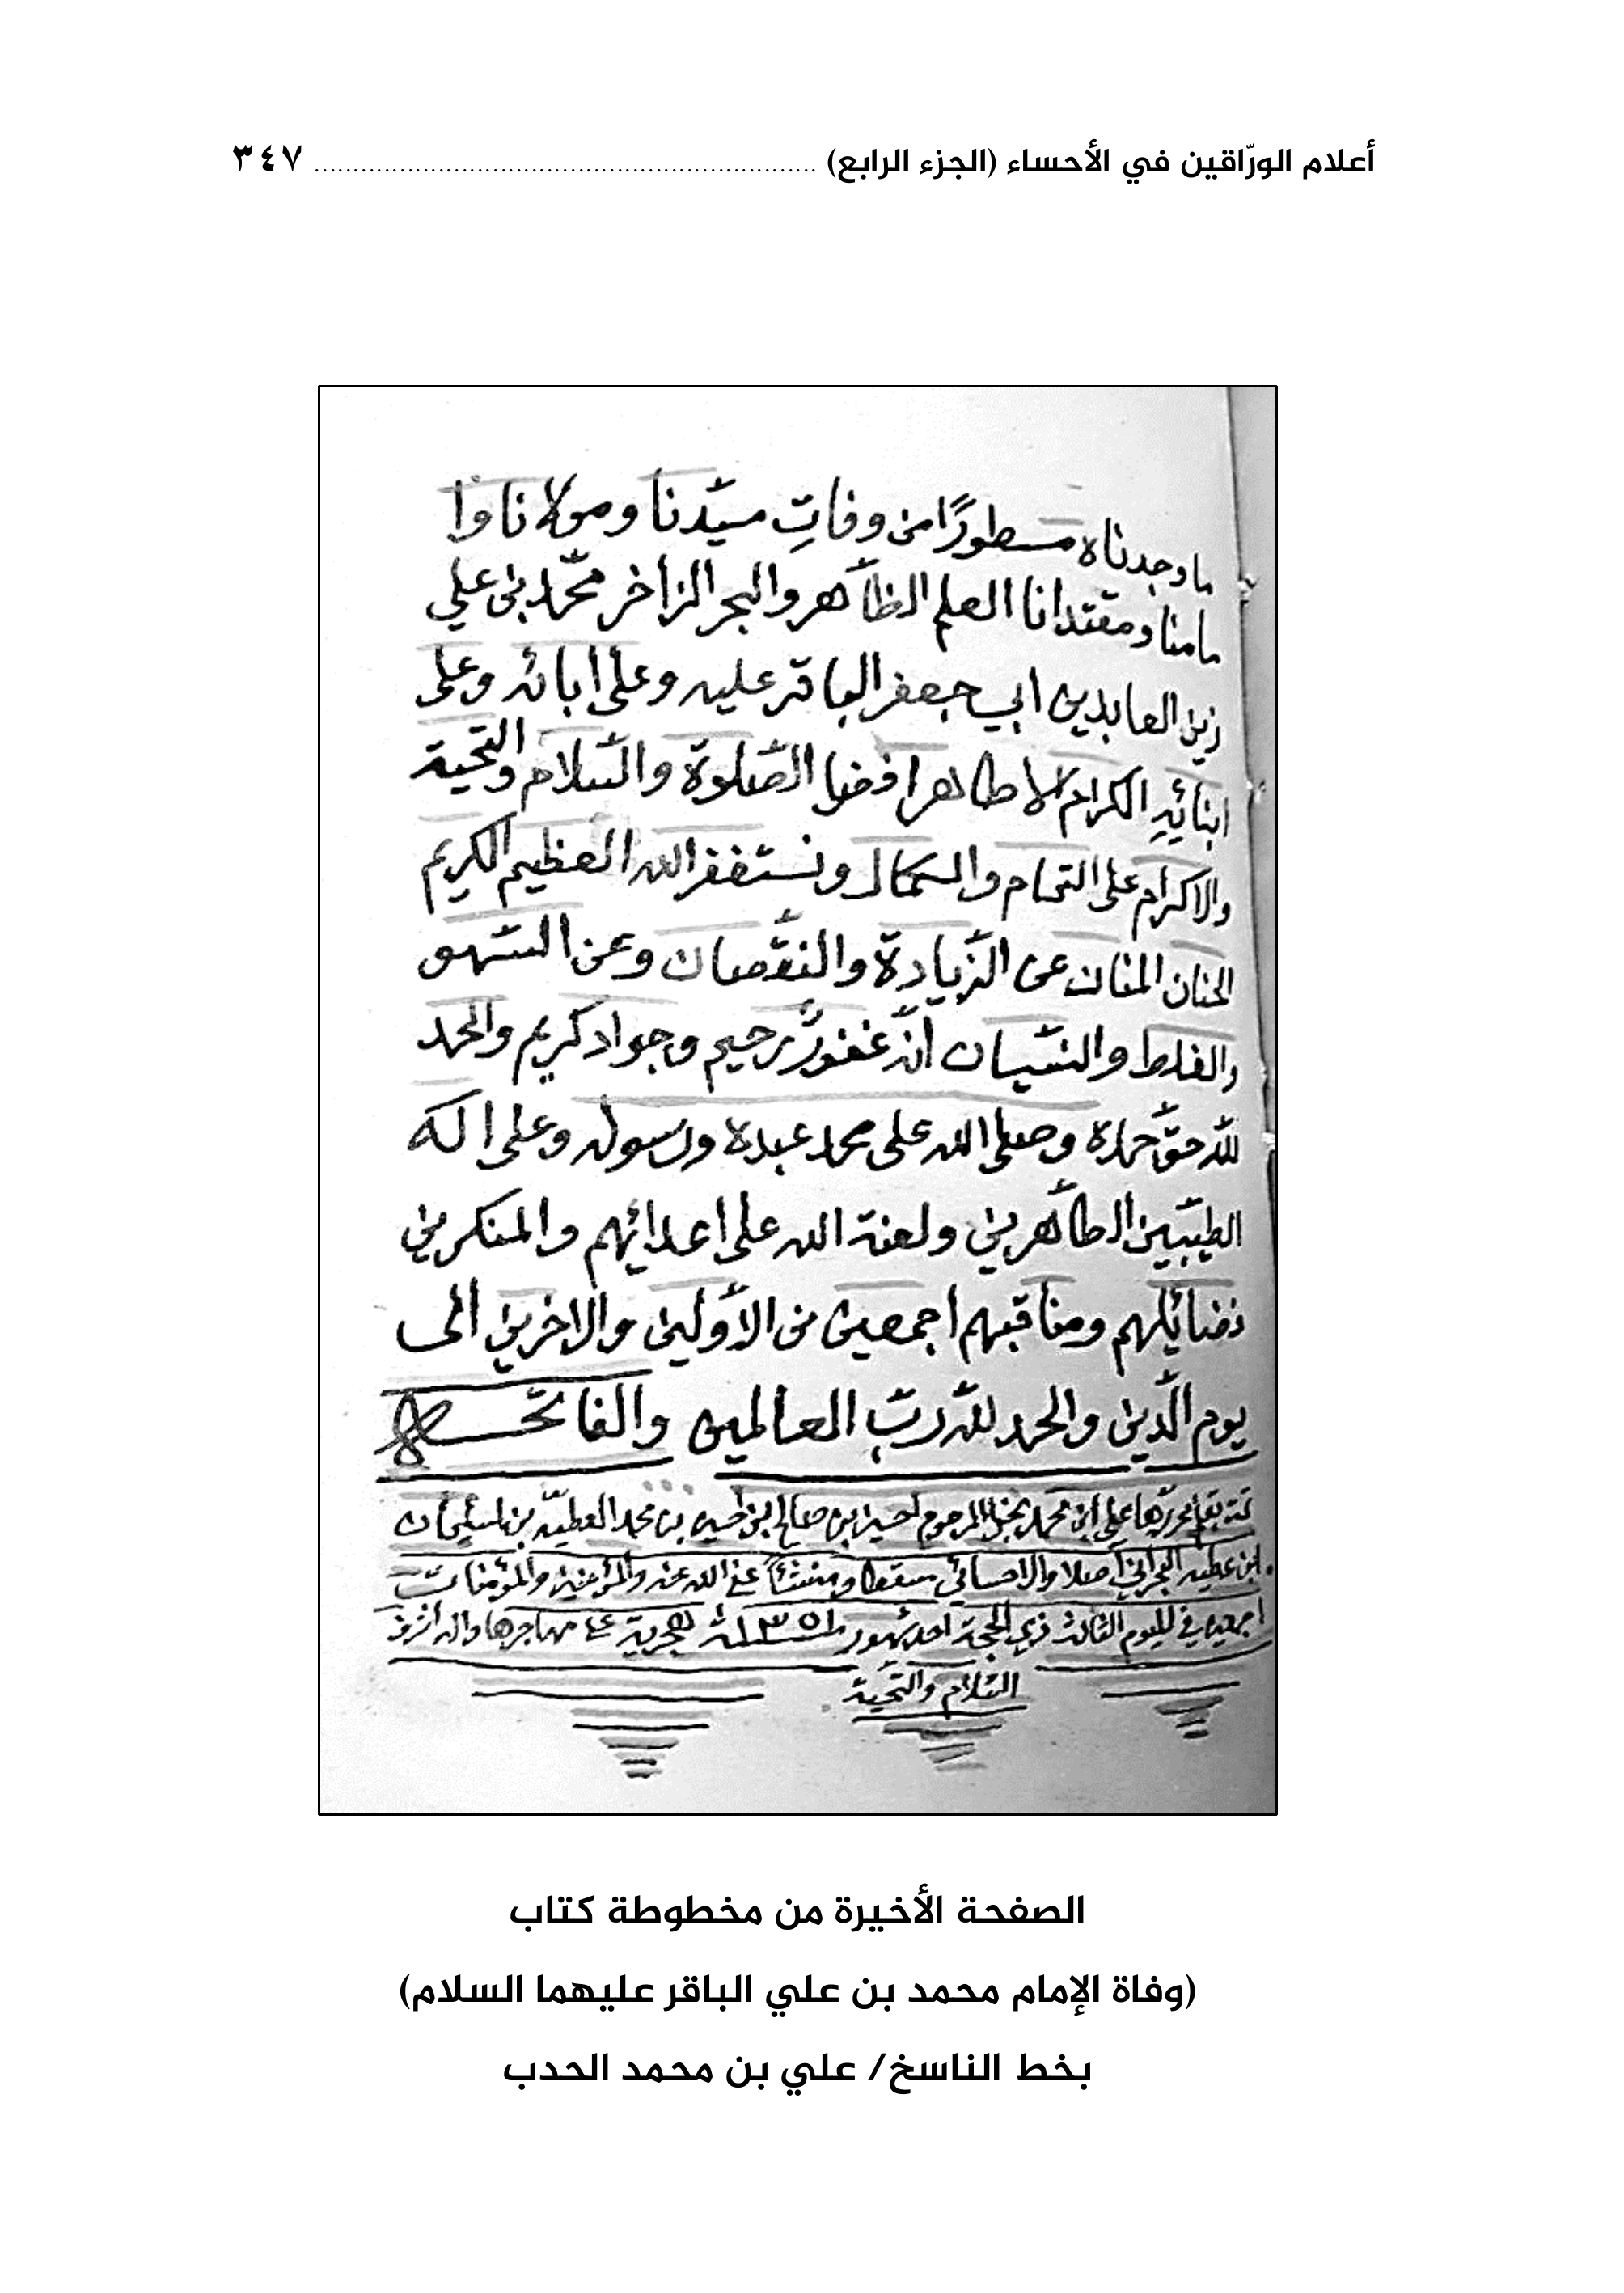 أعلام الورّاقين في الأحساء (الجزء الرابع) ............................................................... ٣٤٧
ما وجدناه مسطورًا من وفاتِ سيّدنا ومولانا وا
مامنا ومقتدانا العلم الظاهر والبحر الزاخر محمّد بن علي
زين العابدين ابي جعفر الباقر عليه وعلى ابائه وعلى
ابنائِهِ الكرام الاطاهر افضل الصّلوة والسّلام والتحية
والاكرام على التمام والكمال ونستغفر الله العظيم الكريم
الحنان المنان عن الزّيادة والنقصان وعن السّهو
والغلط والنسّيان انّه غفورٌ رحيم وجواد كريم والحمد
لله حقّ حمده وصلى الله على محمد عبده ورسوله وعلى اله
الطيّبين الطاهرين ولعنة الله على اعدائهم والمنكرين
فضائلهم ومناقبهم اجمعين من الاوّلين والاخرين الى
يوم الدّين والحمد لله ربّ العالمين والفاتحـــه
تمت بقلم محررها علي ابن محمد بن المرحوم احسين بن صالح ابن احسين بن محمد العطيّه بن سليمان
ابن عطيه البحراني اصلا والاحسائي مسقطا ومنشئاً عفى الله عنه والمؤمنين والمؤمنات
اجمعين في اليوم الثالث ذي الحجة احد شهور سنة ١٣٥١ هجرية على مهاجرها واله اشرف
السّلام والتحية
الصفحة الأخيرة من مخطوطة كتاب
(وفاة الإمام محمد بن علي الباقر عليهما السلام)
بخط الناسخ/ علي بن محمد الحدب